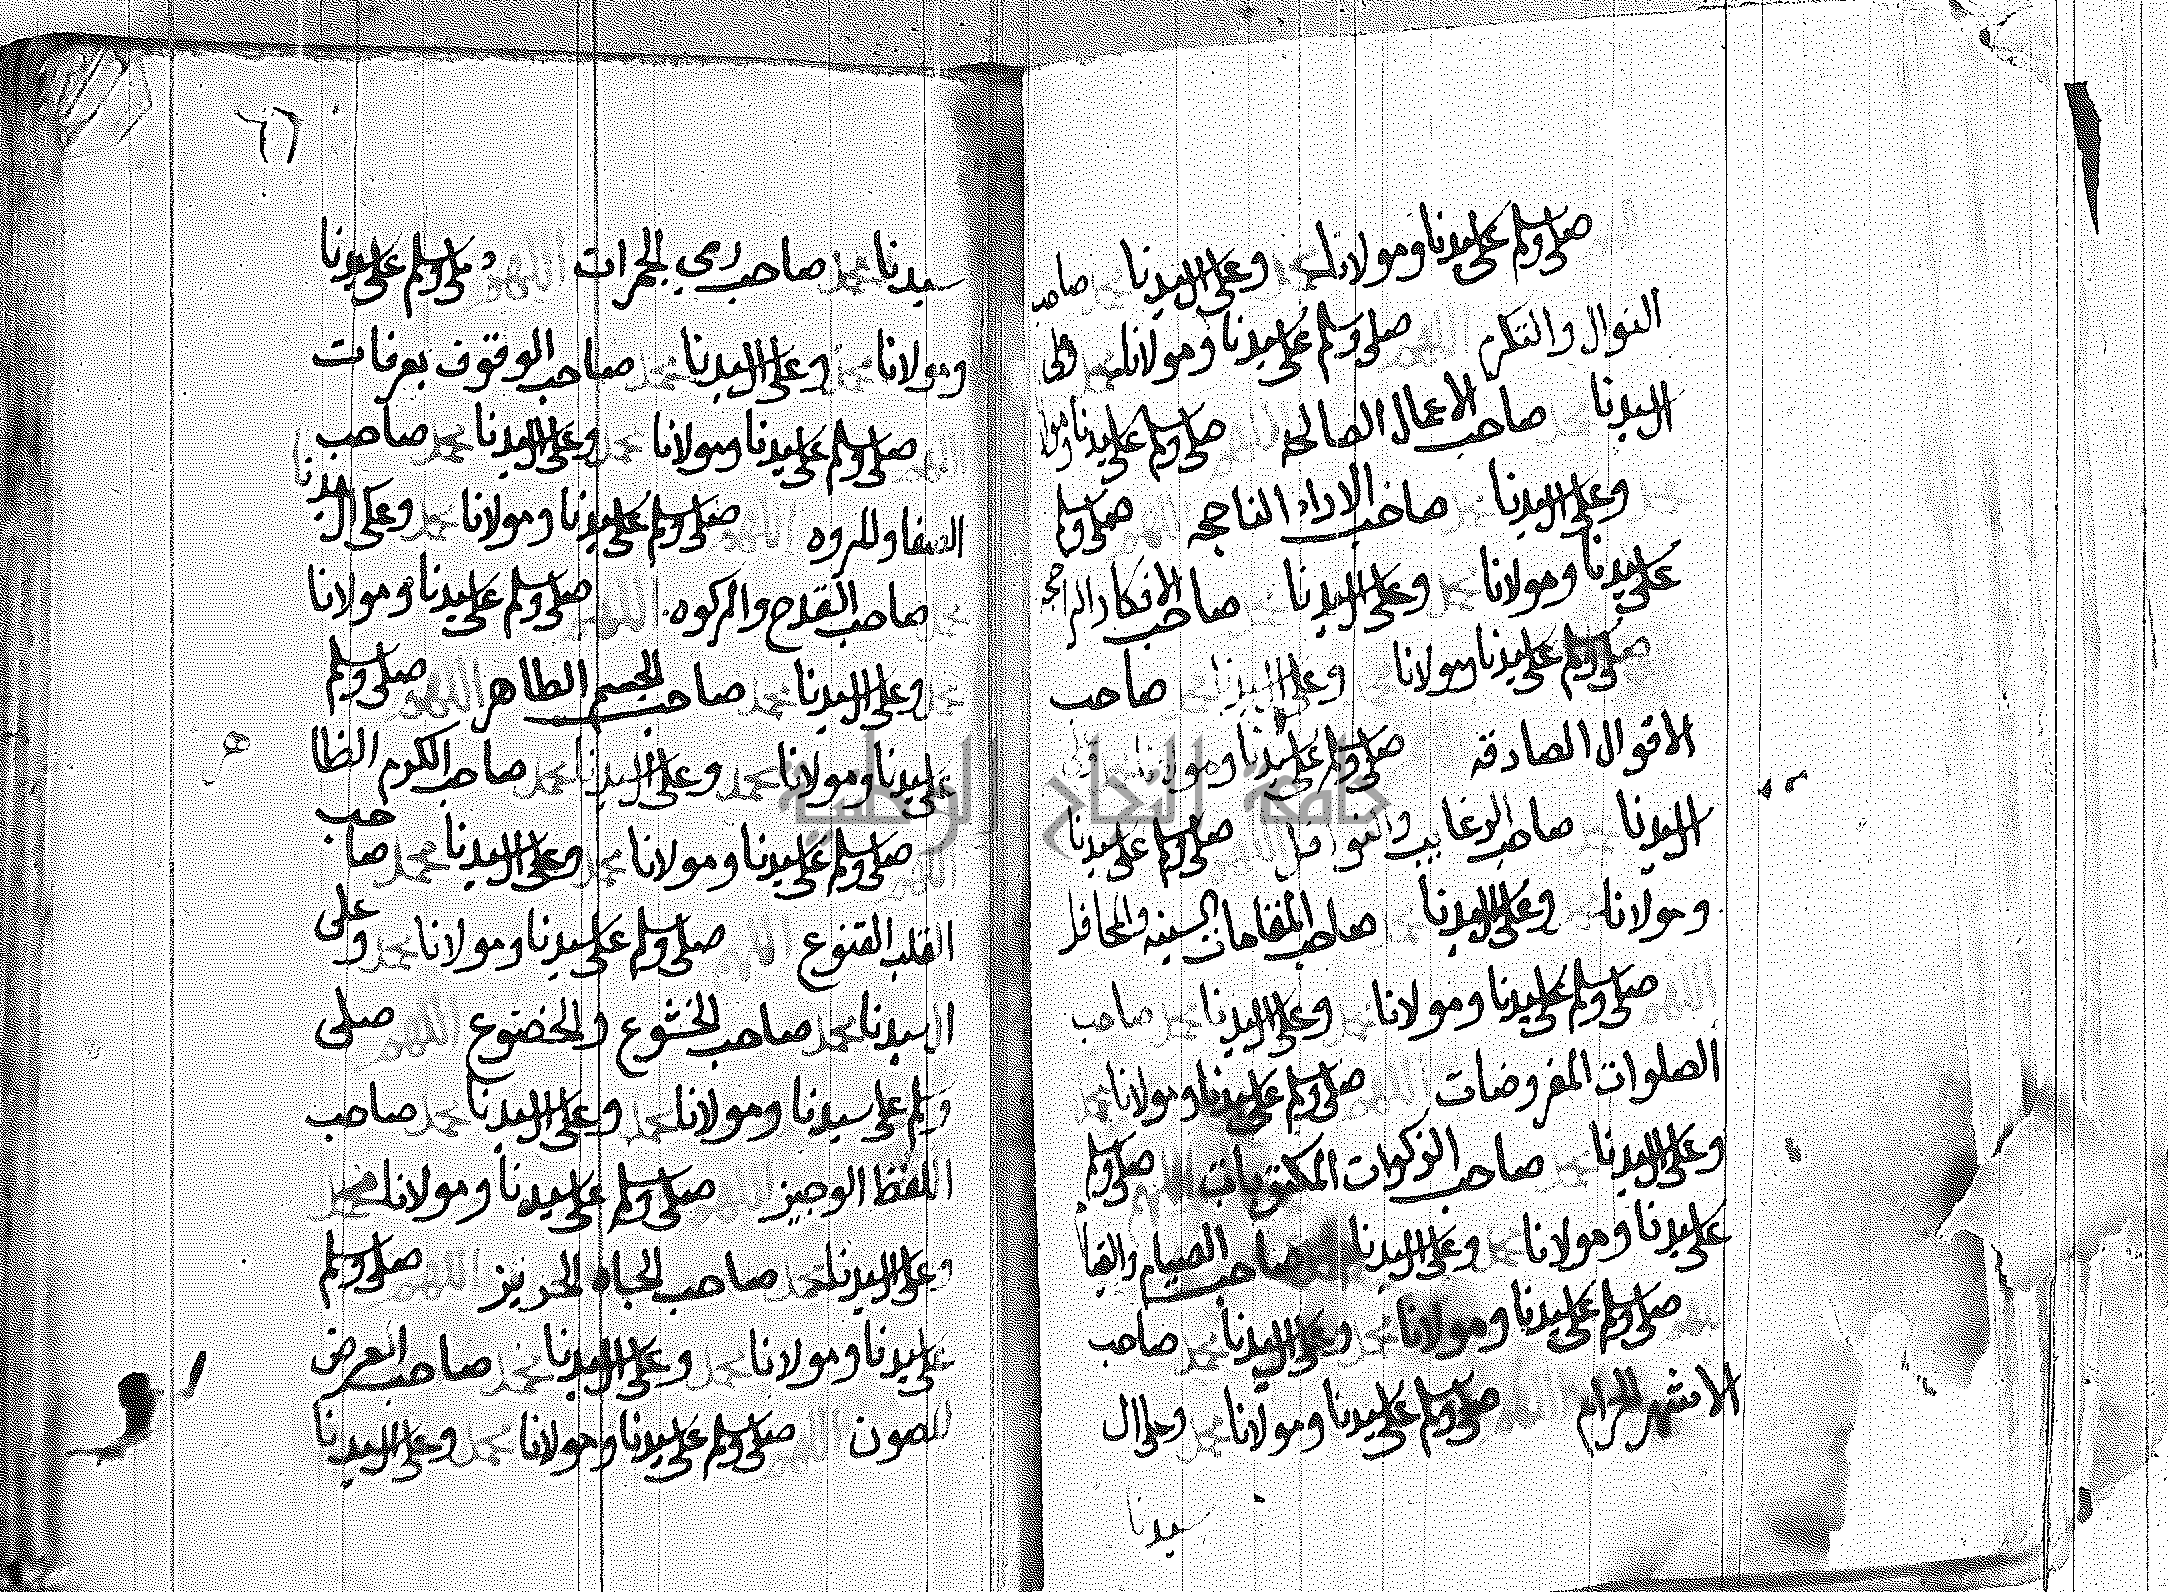 صلى وسلم على سيدنا ومولانا محمد وعلى ال سيدنا محمد صاحب
النوال والتكرم اللهم صلى وسلم على سيدنا ومولانا محمد وعلى
ال سيدنا صاحب الاعمال الصالحه صلى وسلم على سيدنا ومولا
وعلى ال سيدنا صاحب الاراء الناجحه صلى وسلم
على سيدنا ومولانا محمد وعلى ال سيدنا صاحب الافكار الراجحه
صلى وسلم على سيدنا ومولانا وعلى ال سيدنا صاحب
الاقوال الصادقه صلى وسلم على سيدنا ومولانا وعلى
ال سيدنا صاحب الرغايب والنوافل صلى وسلم على سيدنا
ومولانا وعلى ال سيدنا صاحب المقامات السنيه والمحافل
اللهم صلى وسلم على سيدنا ومولانا محمد وعلى ال سيدنا محمد صاحب
الصلوات المفروضات اللهم صلى وسلم على سيدنا ومولانا محمد
وعلى ال سيدنا محمد صاحب الزكوات المكتوبات اللهم صلى وسلم
على سيدنا ومولانا محمد وعلى ال سيدنا صاحب الصيام والقيا
صلى وسلم على سيدنا ومولانا محمد وعلى ال سيدنا محمد صاحب
الاشهر الحرام اللهم صلى وسلم على سيدنا ومولانا محمد وعلى ال
سيدنا
٦٦
سيدنا محمد صاحب رمي الجمرات اللهم صلى وسلم على سيدنا
ومولانا محمد وعلى ال سيدنا محمد صاحب الوقوف بعرفات
اللهم صلى وسلم على سيدنا ومولانا محمد وعلى ال سيدنا محمد صاحب
الصفا والمروه اللهم صلى وسلم على سيدنا ومولانا محمد وعلى ال سيدنا
محمد صاحب القدح والركوه اللهم صلى وسلم على سيدنا ومولانا
محمد وعلى ال سيدنا محمد صاحب الجسم الطاهر اللهم صلى وسلم
على سيدنا ومولانا محمد وعلى ال سيدنا محمد صاحب الكرم الظا
هر
اللهم صلى وسلم على سيدنا ومولانا محمد وعلى ال سيدنا محمد صاحب
القلب القنوع اللهم صلى وسلم على سيدنا ومولانا محمد وعلى
ال سيدنا محمد صاحب الخشوع والخضوع اللهم صلى
وسلم على سيدنا ومولانا محمد وعلى ال سيدنا محمد صاحب
اللفظ الوجيز اللهم صلى وسلم على سيدنا ومولانا محمد
وعلى ال سيدنا محمد صاحب الجاه الحريز اللهم صلى وسلم
على سيدنا ومولانا محمد وعلى ال سيدنا محمد صاحب العرض
المصون اللهم صلى وسلم على سيدنا ومولانا محمد وعلى ال سيدنا
جامعة النجاح الوطنية